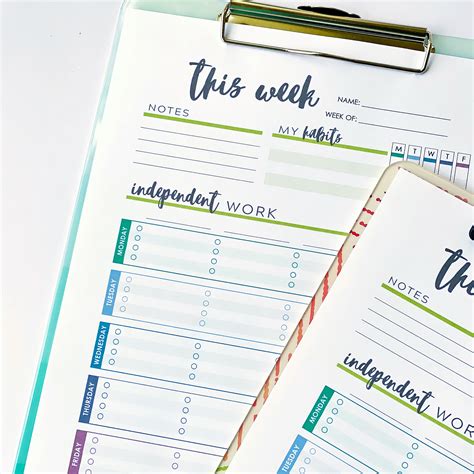 this week
NAME:
WEEK OF:
NOTES
MY habits
M T W T F
independent WORK
MONDAY
TUESDAY
WEDNESDAY
THURSDAY
FRIDAY
NOTES
independent WORK
MONDAY
TUESDAY